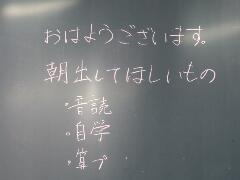 おはようございます。
朝出してほしいもの
・音読
・自学
・算プ